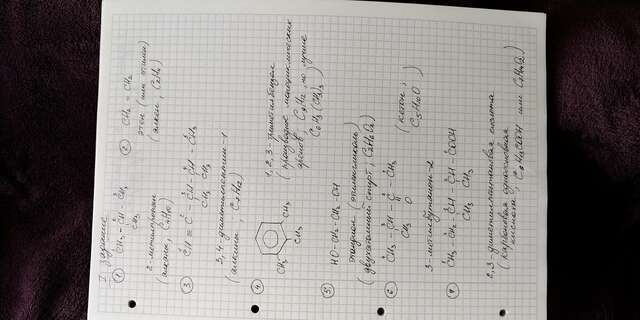 I задание
① CH₃ - CH - CH₃
CH₃
2-метилпропан
(алканы, C₄H₁₀)
② CH₂ = CH₂
этен (или этилен)
(алкен, C₂H₄)
③ CH ≡ C - CH - CH - CH₃
CH₃ CH₃
3,4-диметилпентин-1
(алкины C₇H₁₂)
④
CH₃
CH₃
CH₃
1,2,3-триметилбензол
(производное моноциклических
аренов, C₉H₁₂, но лучше
C₆H₃(CH₃)₃
⑤ HO-CH₂-CH₂-OH
этандиол (этиленгликоль)
(двухатомный спирт, C₂H₆O₂)
⑥ CH₃ - CH - C - CH₃
CH₃ O
3-метилбутанон-2
(кетон,
C₅H₁₀O)
CH₃ - CH₂ - CH - CH - COOH
CH₃ CH₃
2,3-диметилпентановая кислота
(карбоновая одноосновная
кислота, C₆H₁₃COOH или C₇H₁₄O₂)